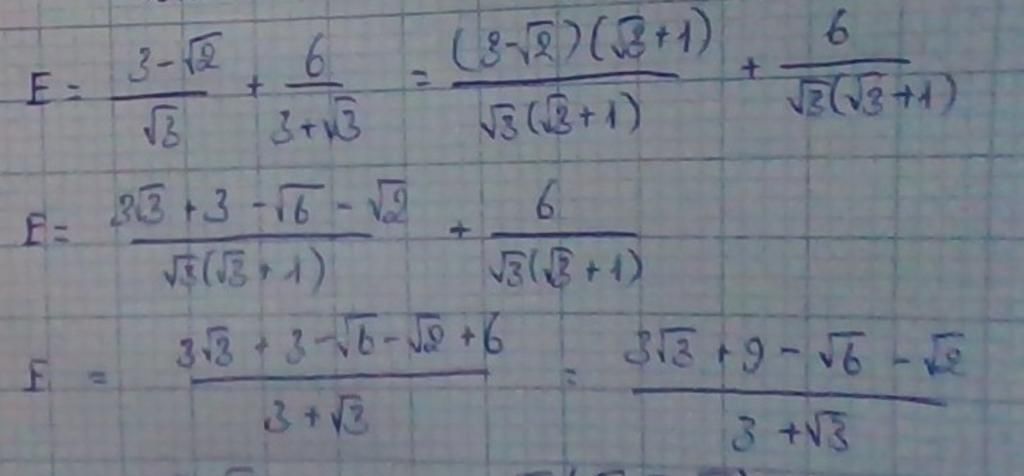 E = (3-√2)/√3 + 6/(3+√3) = ((3-√2)(√3+1))/(√3(√3+1)) + 6/(√3(√3+1))
E = (3√3 + 3 - √6 - √2)/(√3(√3+1)) + 6/(√3(√3+1))
E = (3√3 + 3 - √6 - √2 + 6)/(3+√3) = (3√3 + 9 - √6 - √2)/(3+√3)